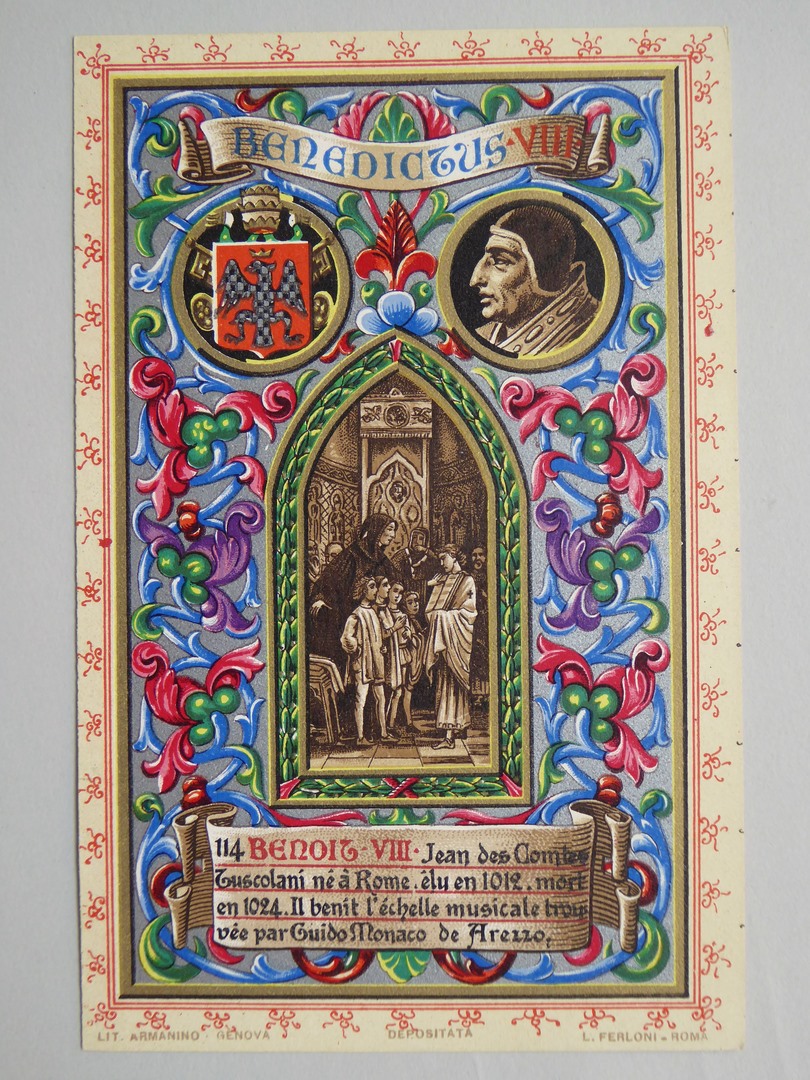 BENEDICTUS·VIII·
114 BENOIT-VIII· Jean des Comtes
Tuscolani né à Rome. élu en 1012. mort
en 1024. Il benit l'échelle musicale trou
vée par Guido Monaco de Arezzo.
LIT. ARMANINO - GENOVA DEPOSITATA L. FERLONI - ROMA